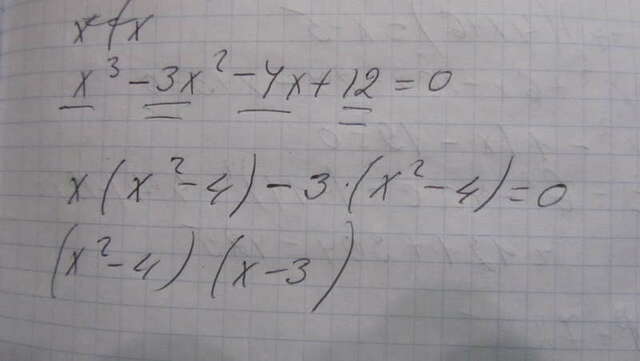 x³ - 3x² - 4x + 12 = 0
x(x² - 4) - 3 · (x² - 4) = 0
(x² - 4) (x - 3)